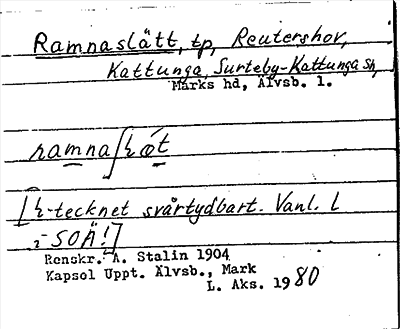 Ramnaslätt, tp, Reutershov,
Kattunga, Surteby-Kattunga sn,
Marks hd, Älvsb. l.
[ɫ-tecknet svårtydbart. Vanl. l
i SOÄ!]
Renskr. A. Stalin 1904
Kapsol Uppt. Älvsb., Mark
L. Aks. 1980